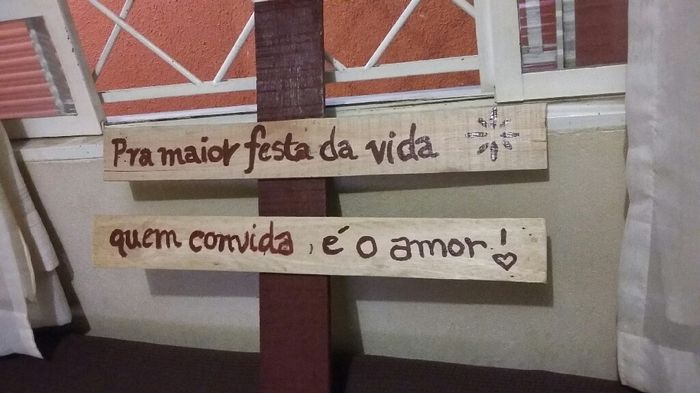 Pra maior festa da vida
quem convida, é o amor!